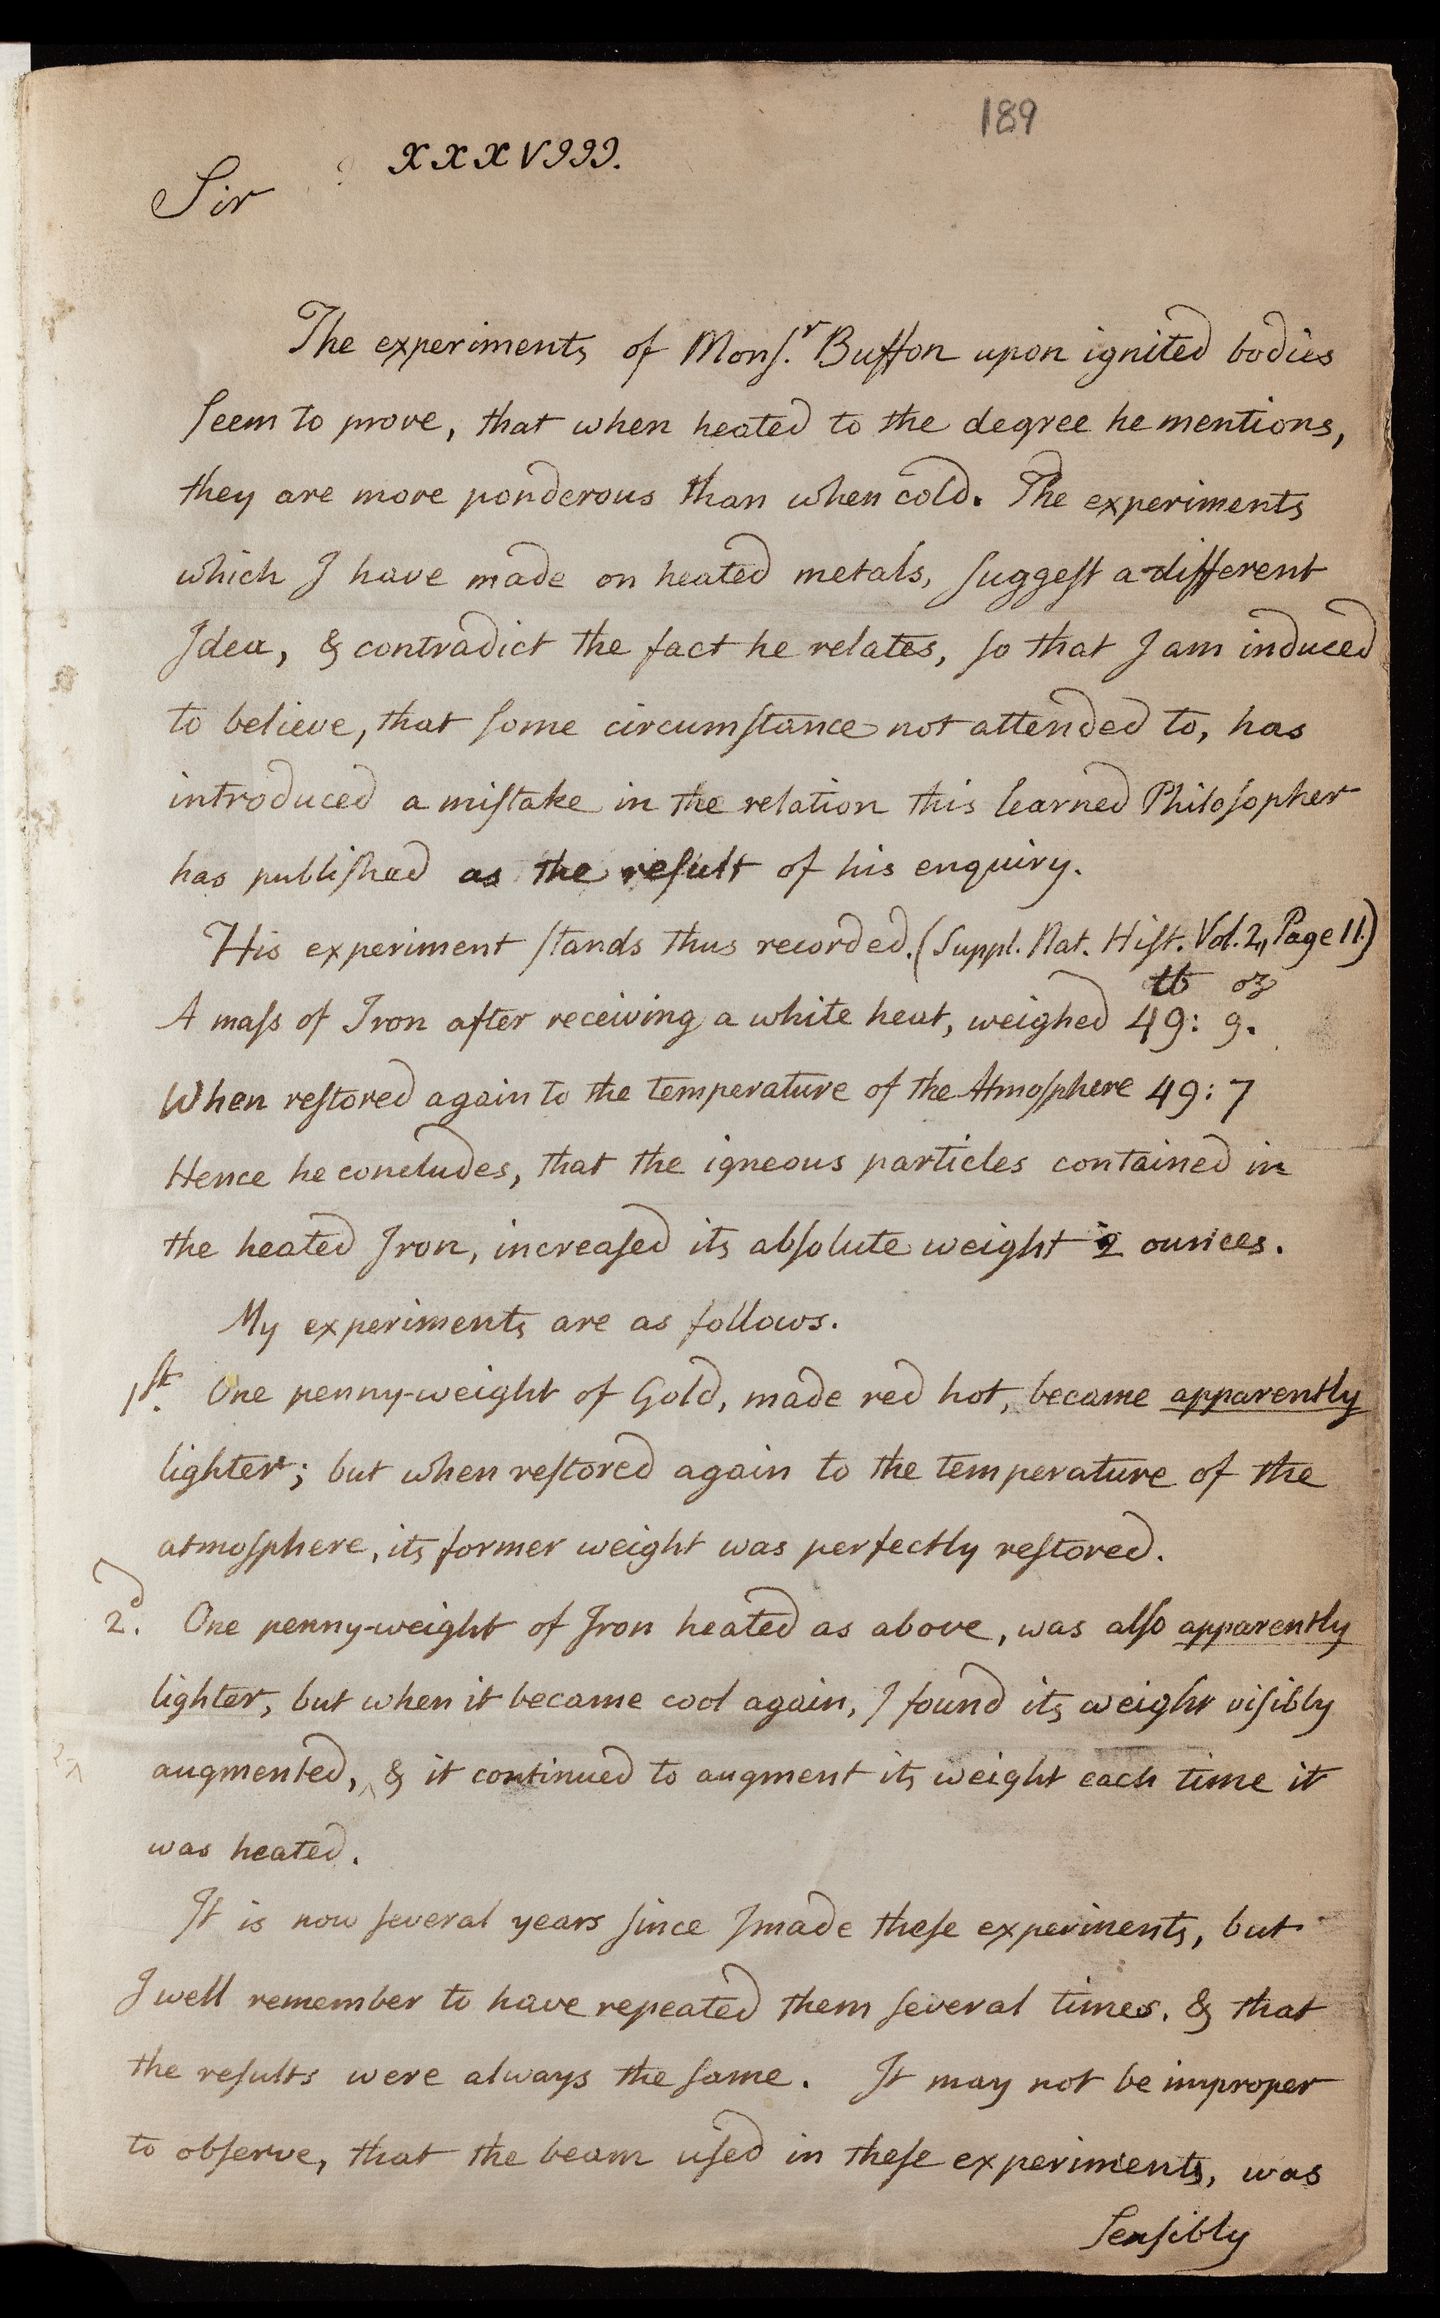 189
XXXVIII.
Sir
The experiments of Monsr. Buffon upon ignited bodies
seem to prove, that when heated to the degree he mentions,
they are more ponderous than when cold. The experiments
which I have made on heated metals, suggest a different
Idea, & contradict the fact he relates, so that I am induced
to believe, that some circumstance not attended to, has
introduced a mistake in the relation this learned Philosopher
has published as the result of his enquiry.
His experiment stands thus recorded. (Suppl. Nat. Hist. Vol. 2,, Page 11.)
lb oz
A mass of Iron after receiving a white heat, weighed 49: 9.
When restored again to the temperature of the Atmosphere 49: 7
Hence he concludes, that the igneous particles contained in
the heated Iron, increased its absolute weight 2 ounces.
My experiments are as follows.
1st. One penny-weight of Gold, made red hot, became apparently
lighter; but when restored again to the temperature of the
atmosphere, its former weight was perfectly restored.
2d. One penny-weight of Iron heated as above, was also apparently
lighter, but when it became cool again, I found its weight visibly
augmented, & it continued to augment its weight each time it
was heated.
It is now several years since I made these experiments, but
I well remember to have repeated them several times, & that
the results were always the same. It may not be improper
to observe, that the beam used in these experiments, was
sensibly